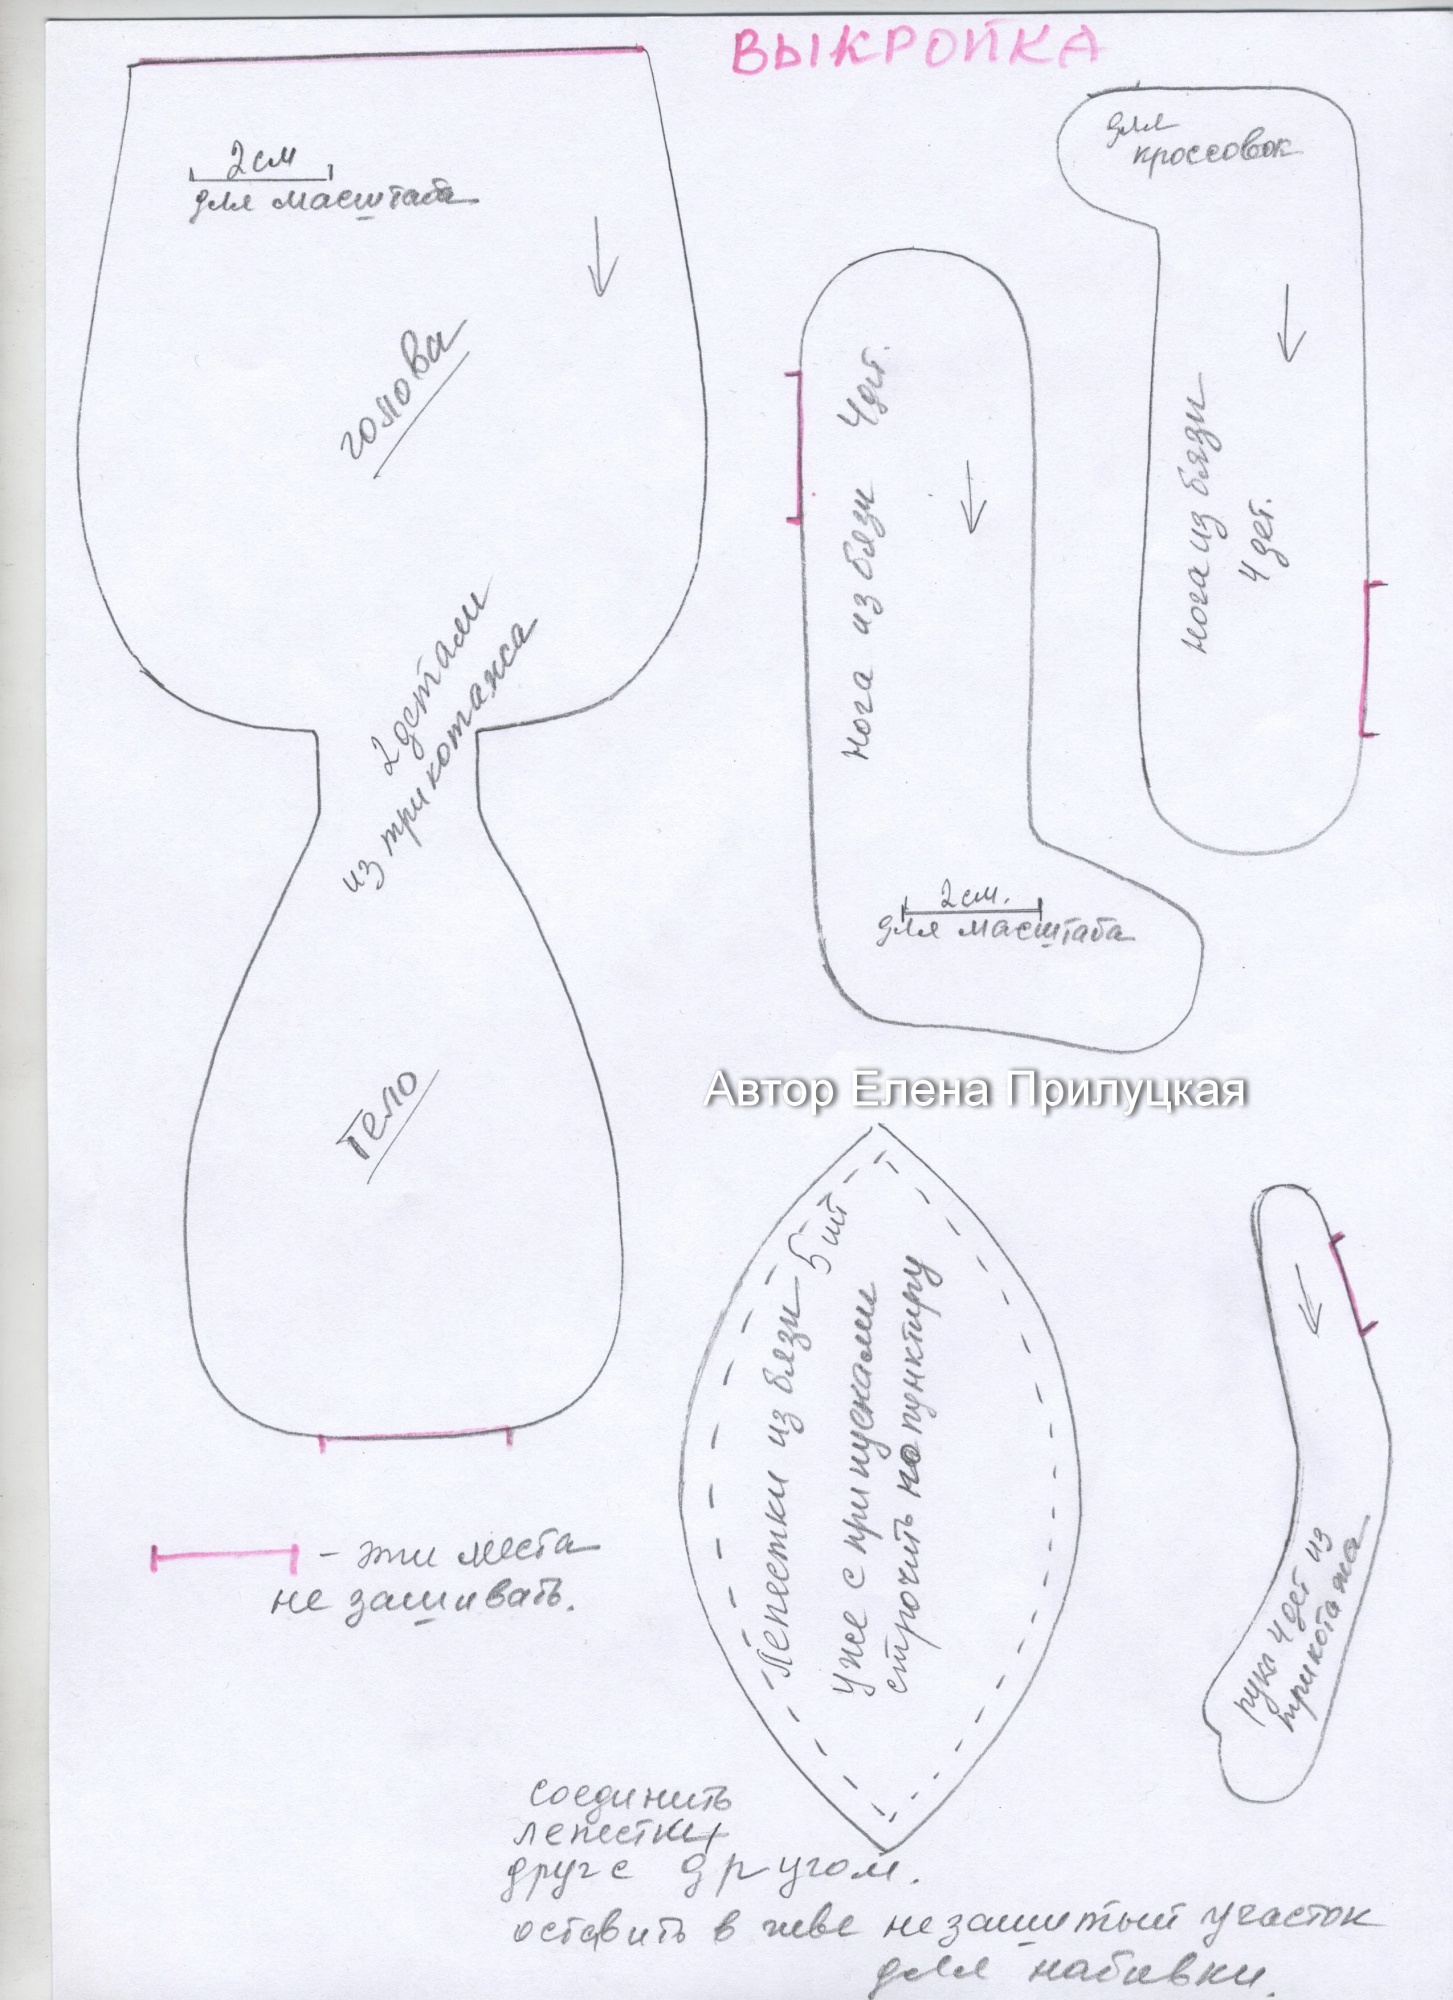 ВЫКРОЙКА
2 см
для масштаба
голова
2 детали
из трикотажа
тело
- эти места
не зашивать.
для
кроссовок
нога из бязи
4 дет.
нога из бязи 4 дет.
2 см.
для масштаба
Автор Елена Прилуцкая
Лепестки из бязи 5 шт
уже с припусками
строчить по пунктиру
рука 4 дет из
трикотажа
соединить
лепестки
друг с другом.
оставить в шве незашитый участок
для набивки.